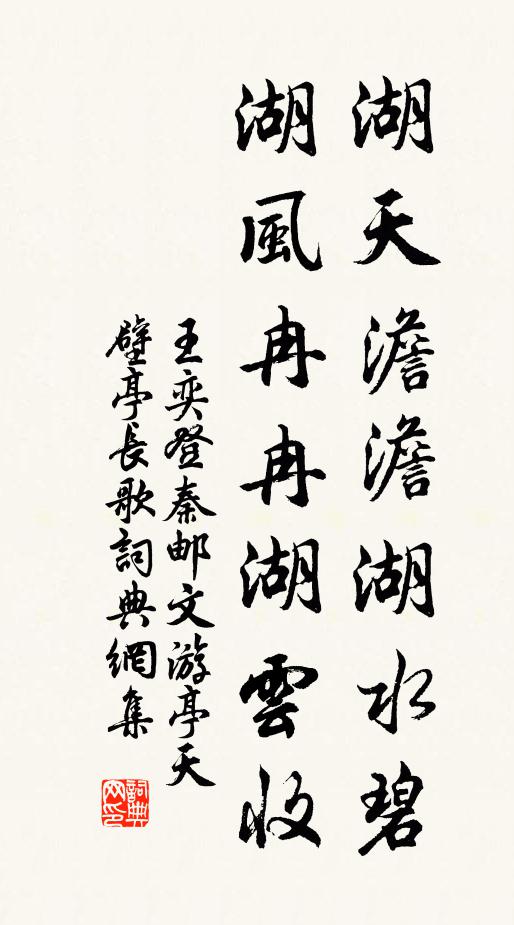 湖天澹澹湖水碧
湖風冉冉湖雲收
王奕登秦邮文游亭天
壁亭長歌詞典網集
詞典
网印